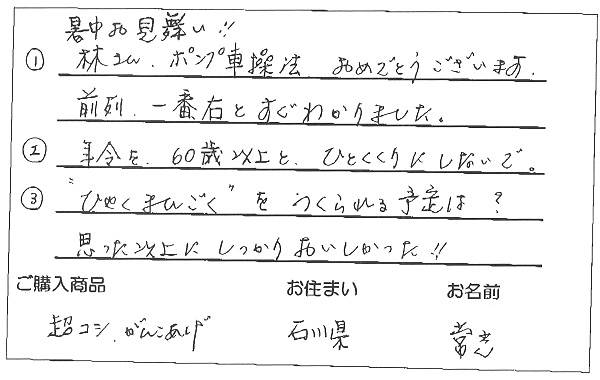 暑中お見舞い!!
① 林さん、ポンプ車操法 おめでとうございます。
前列、一番右とすぐわかりました。
② 年令を、60歳以上と、ひとくくりにしないで。
③ "ひゃくまんごく"を つくられる予定は?
思った以上に しっかりおいしかった!!
ご購入商品 お住まい お名前
超コシ、がんこあげ 石川県